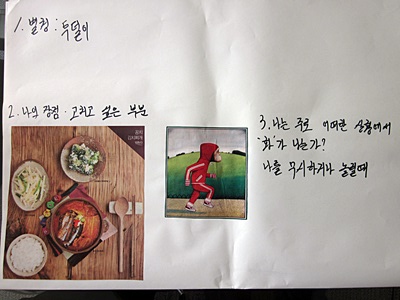 1. 별칭: 투덜이
2. 나의 장점. 고치고 싶은 부분
3. 나는 주로 어떠한 상황에서
'화'가 나는가?
나를 무시하거나 놀릴때